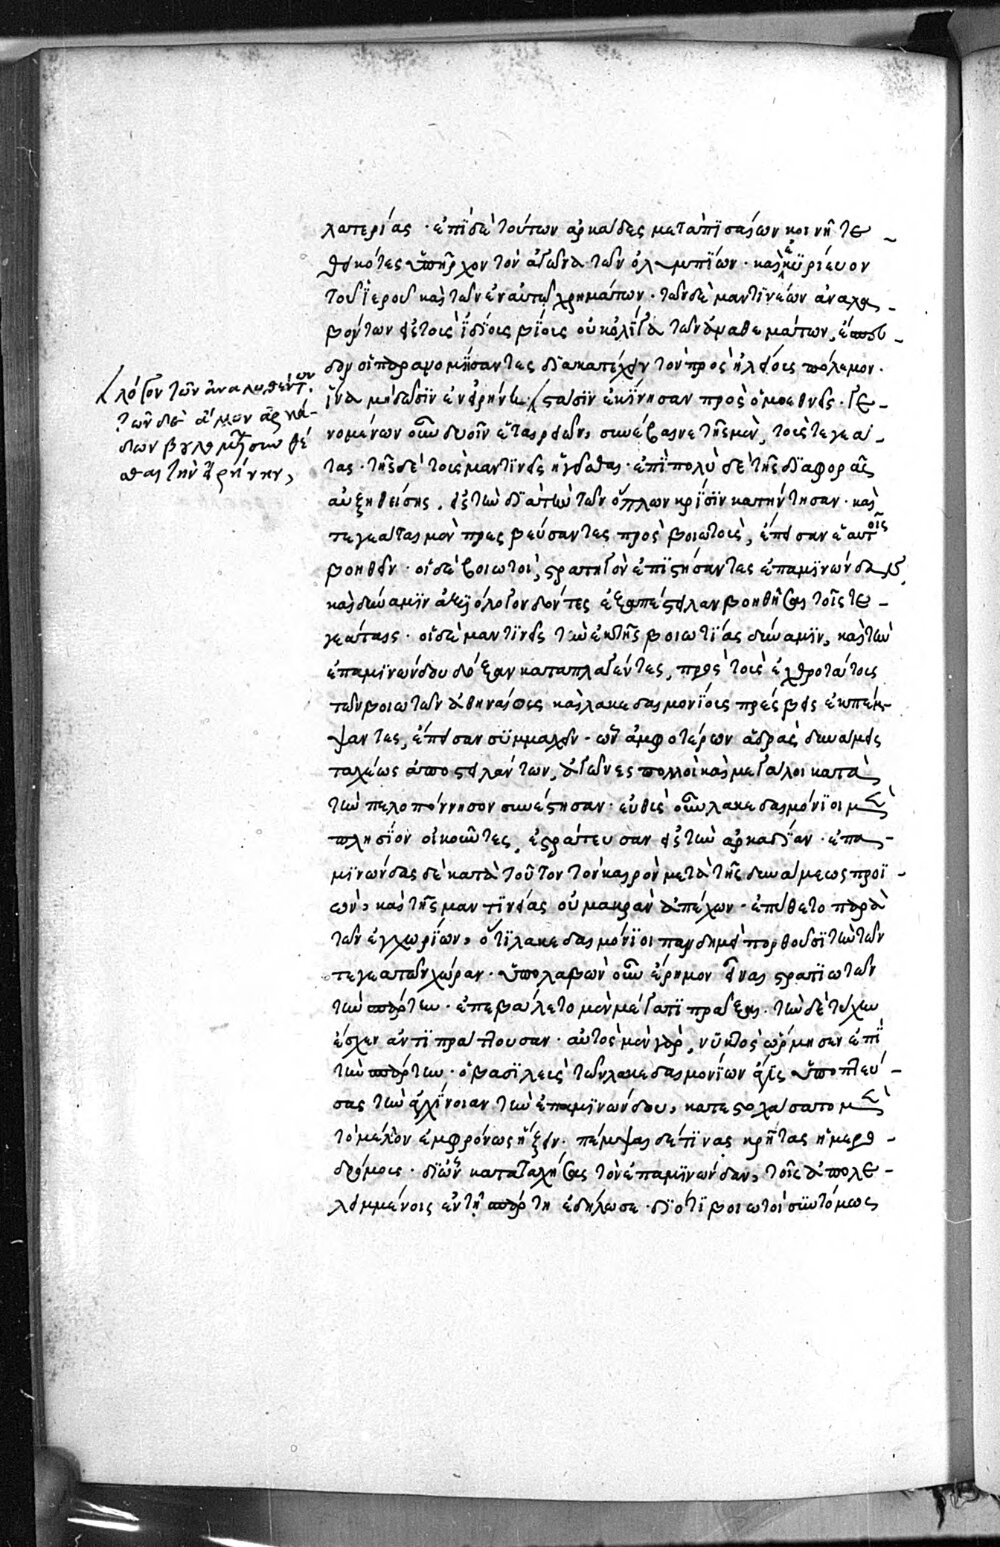 λατερίας · ἐπὶ δὲ τούτων ἀρκάδες μετὰ πισαίων κοινῆ τε-
θεικότες ὑπῆρχον τὸν ἀγῶνα τῶν ὀλυμπίων · καὶ ἐκϋρίευον
τοῦ ἱεροῦ καὶ τῶν ἐν αὐτῶ χρημάτων · τῶν δὲ μαντινέων ἀναλα-
βόντων εἰς τοὺς ἰδίους βίους οὐκ ὀλίγα τῶν ἀναθεμάτων, ἔσπευ-
δον οἱ παρανομήσαντες διακατέχειν τὸν πρὸς ἠλείους πόλεμον ·
ἵνα μὴ δῶσϊν ἐν εἰρήνη · στάσϊν ἐκίνησαν πρὸς ὁμοεθνεῖς · γε-
νομένων οὖν δυοῖν ἑταιρειῶν, συνέβαινε τῆς μὲν, τοὺς τεγεά-
τας · τῆς δὲ τοὺς μαντινεῖς ἡγεῖσθαι · ἐπὶ πολὺ δὲ τῆς διαφορᾶς
αὐξηθείσης, εἰς τὴν διὰ τῶν ὅπλων κρίσϊν κατήντησαν · καὶ
τεγεάται μὲν πρεσβεύσαντες πρὸς βοιωτοὺς, ἔπεισαν ἑαυτοῖς
βοηθεῖν · οἱ δὲ βοιωτοὶ, στρατηγὸν ἐπιστήσαντες ἐπαμινώνδαν,
καὶ δύναμϊν ἀξιόλογον δόντες ἐξαπέστειλαν βοηθῆσαι τοῖς τε-
γεάταις · οἱ δὲ μαντινεῖς τὴν ἐκ τῆς βοιωτίας δύναμϊν, καὶ τὴν
ἐπαμινώνδου δόξαν καταπλαγέντες, πρὸς τοὺς ἐχθροτάτους
τῶν βοιωτῶν ἀθηναίους καὶ λακεδαιμονίους πρέσβεις ἐκπέμ-
ψαντες, ἔπεισαν συμμαχεῖν · ὧν ἀμφοτέρων ἁδρὰς δυνάμεις
ταχέως ἀποστειλάντων, ἀγῶνες πολλοὶ καὶ μεγάλοι κατὰ
τὴν πελοπόννησον συνέστησαν · εὐθὺς οὖν λακεδαιμόνιοι μὲν
πλησίον οἰκοῦντες, ἐστράτευσαν εἰς τὴν ἀρκαδίαν · ἐπα-
μινώνδας δὲ κατὰ τοῦτον τὸν καιρὸν μετὰ τῆς δυνάμεως προϊ-
ὼν, καὶ τῆς μαντινείας οὐ μακρὰν ἀπέχων · ἐπύθετο παρὰ
τῶν ἐγχωρίων, ὅτι λακεδαιμόνιοι πανδημεὶ πορθοῦσϊ τὴν τῶν
τεγεατῶν χώραν · ὑπολαβὼν οὖν ἔρημον εἶναι στρατϊωτῶν
τὴν σπάρτην · ἐπεβάλετο μὲν μεγάλη πράξει · τὴν δὲ τύχην
ἔσχεν ἀντιπράττουσαν · αὐτὸς μὲν γὰρ, νυκτὸς ὥρμησεν ἐπὶ
τὴν σπάρτην · ὁ βασιλεὺς τῶν λακεδαιμονίων ἆγις ὑποπτεύ-
σας τὴν ἀγχίνοιαν τὴν ἐπαμινώνδου, κατεστοχάσατο μὲν
τὸ μέλλον ἐμφρόνως ἥξειν · πέμψας δέ τινας κρῆτας ἡμερο-
δρόμους · δι' ὧν καταταχήσας τὸν ἐπαμινώνδαν, τοῖς ἀπολε-
λειμμένοις ἐν τῆ σπάρτη ἐδήλωσε · διότι βοιωτοὶ συντόμως
λόγον τῶν ἀναλωθέντων ·
τῶν δὲ ἄλλων ἀρκά-
δων βουλομένων συνθέ
σθαι τὴν εἰρήνην,